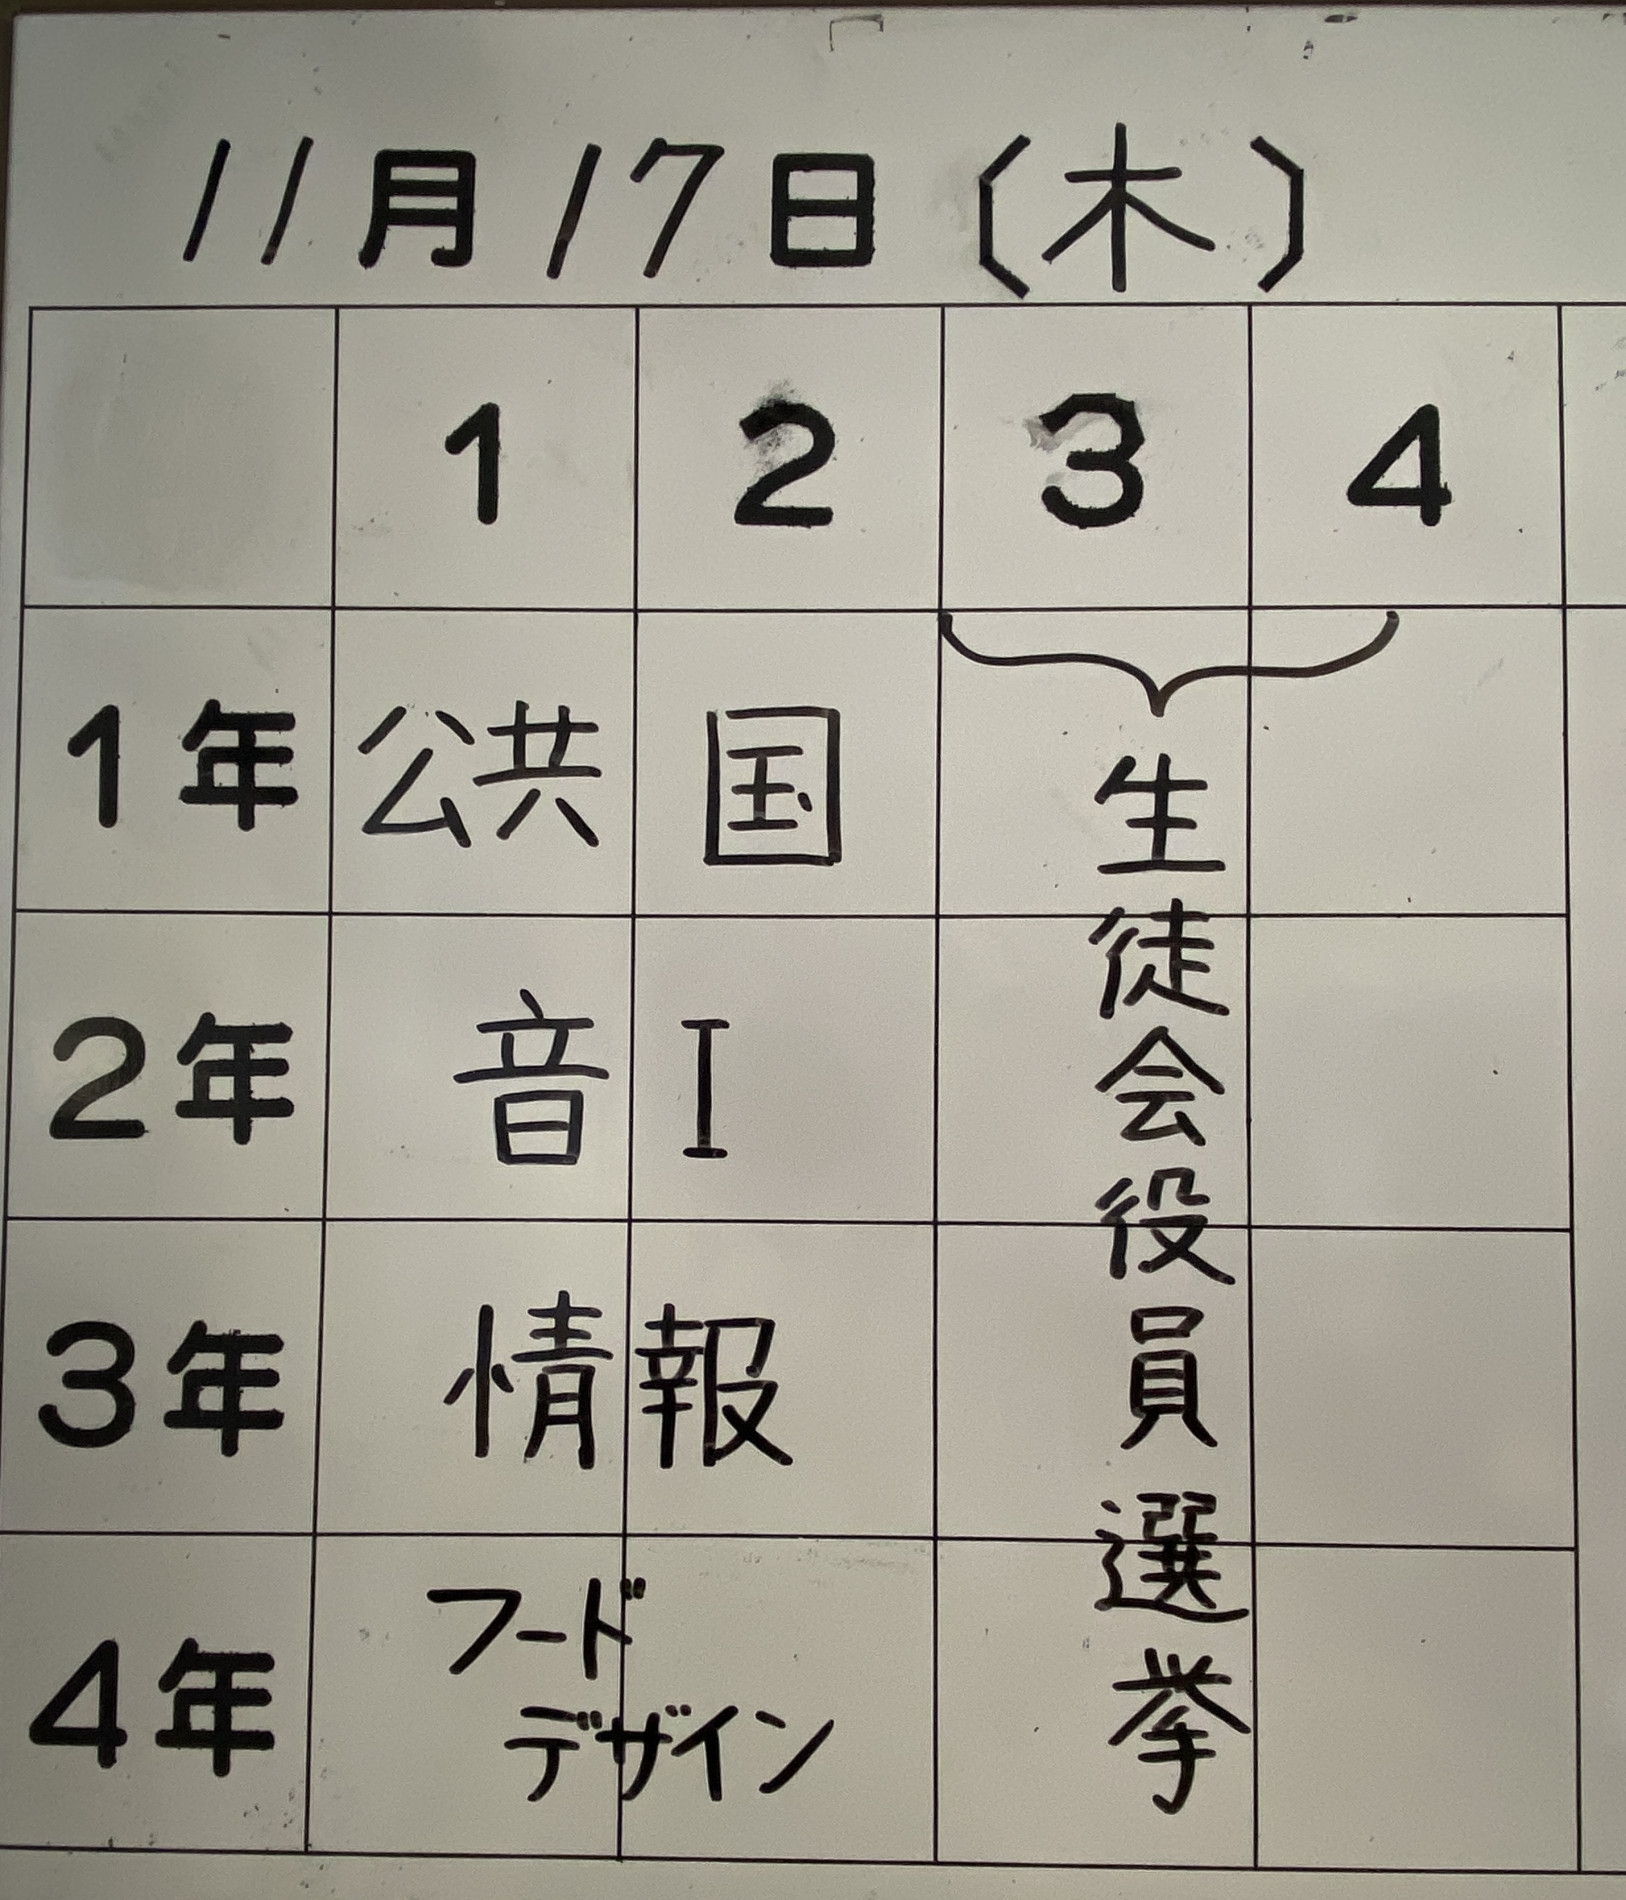 11月17日(木)
1 2 3 4
1年 公共 国
2年 音I
3年 情報
4年 フード
デザイン
生徒会役員選挙